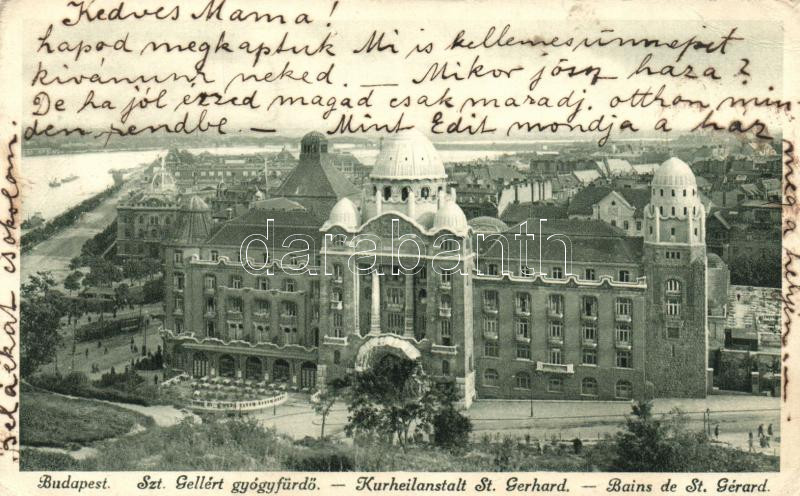 Kedves Mama!
hapod megkaptuk Mi is kellemes ünnepet
kívánunk neked. — Mikor jössz haza?
De ha jól érzed magad csak maradj otthon min
den rendbe. — Mint Edit mondja a ház
meg a helyén
csókol
Bélákat
darabanth.com
Budapest. Szt. Gellért gyógyfürdő. — Kurheilanstalt St. Gerhard. — Bains de St. Gérard.